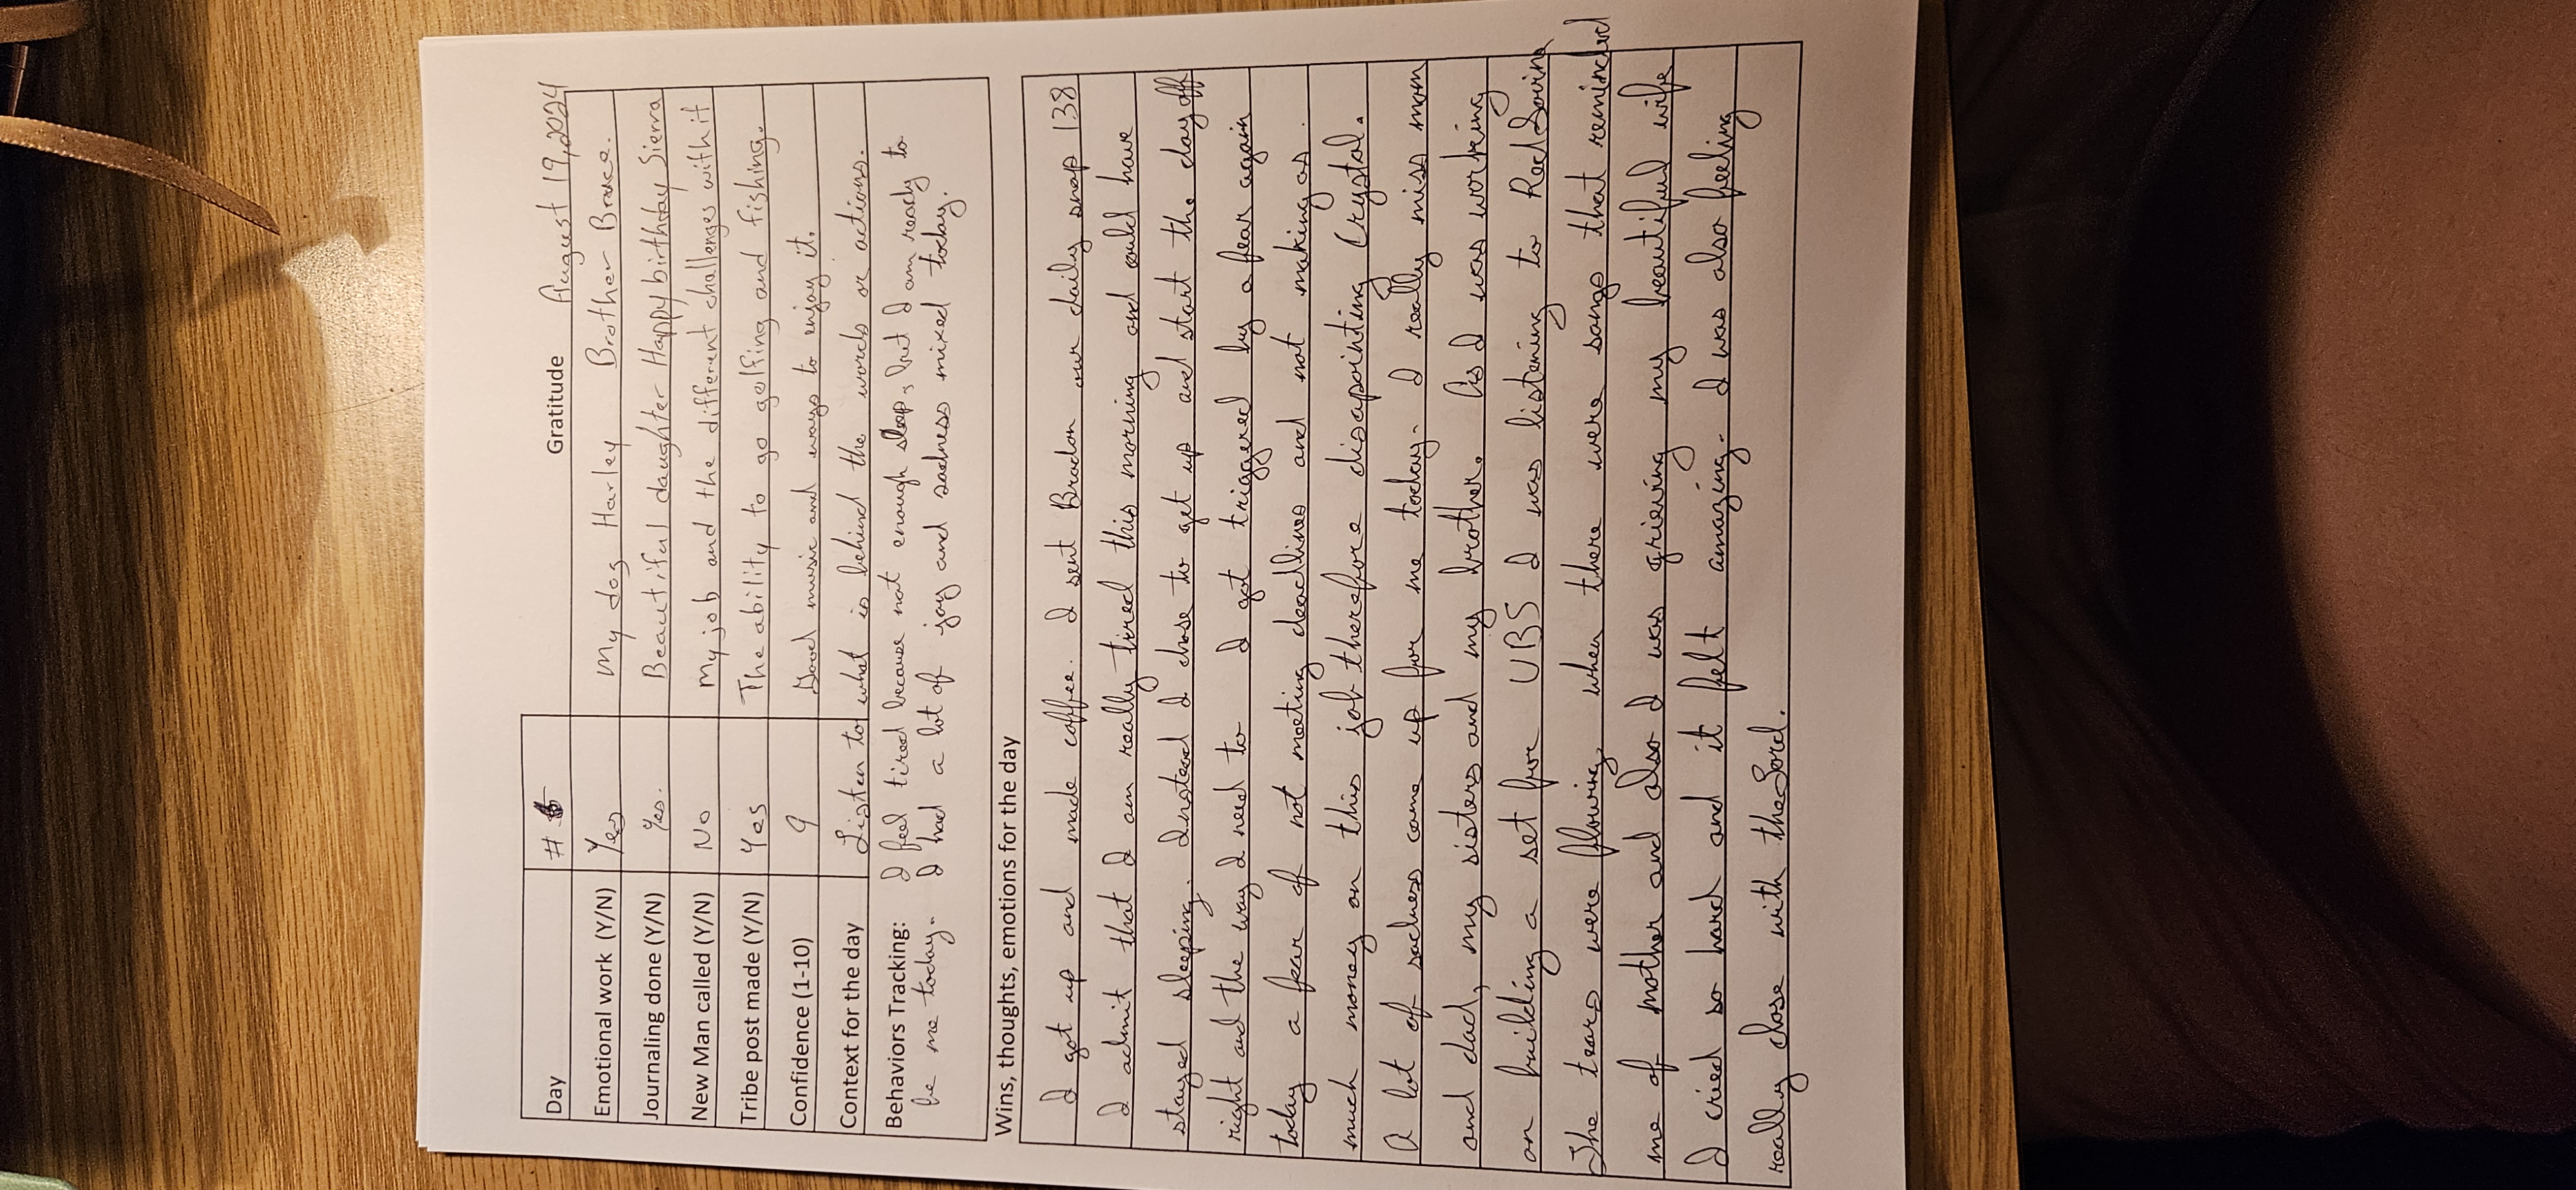 Gratitude August 19, 2024
Day #
Emotional work (Y/N) Yes My dog Harley Brother Bruce.
Journaling done (Y/N) Yes. Beautiful daughter Happy birthday Sierra
New Man called (Y/N) No My job and the different challenges with it
Tribe post made (Y/N) Yes The ability to go golfing and fishing.
Confidence (1-10) 9 Good music and ways to enjoy it.
Context for the day Listen to what is behind the words or actions.
Behaviors Tracking: I feel tired because not enough sleep, but I am ready to
be me today. I had a lot of joy and sadness mixed today.
Wins, thoughts, emotions for the day
I got up and made coffee. I sent Bradon our daily snap 138
I admit that I am really tired this morning and could have
stayed sleeping. Instead I chose to get up and start the day off
right and the way I need to I got triggered by a fear again
today a fear of not meeting deadlines and not making as
much money on this job therefore disappointing Crystal.
A lot of sadness came up for me today. I really miss mom
and dad, my sisters and my brother. As I was working
on building a set for UBS I was listening to Red Sovine
The tears were flowing, when there were songs that reminded
me of mother and also I was grieving my beautiful wife
I cried so hard and it felt amazing. I was also feeling
really close with the Lord.